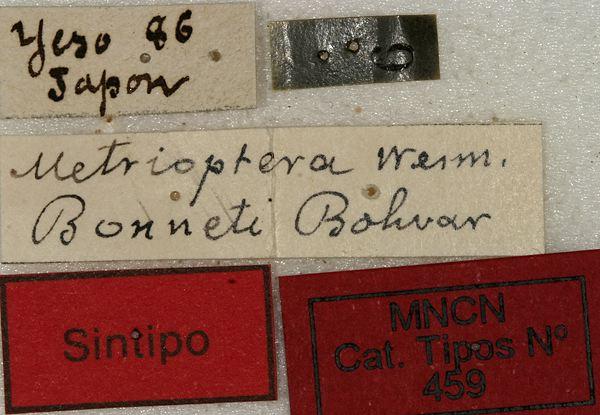 Yeso 86
Japon
6
Metrioptera Wesm.
Bonneti Bolivar
Sintipo
MNCN
Cat. Tipos Nº
459